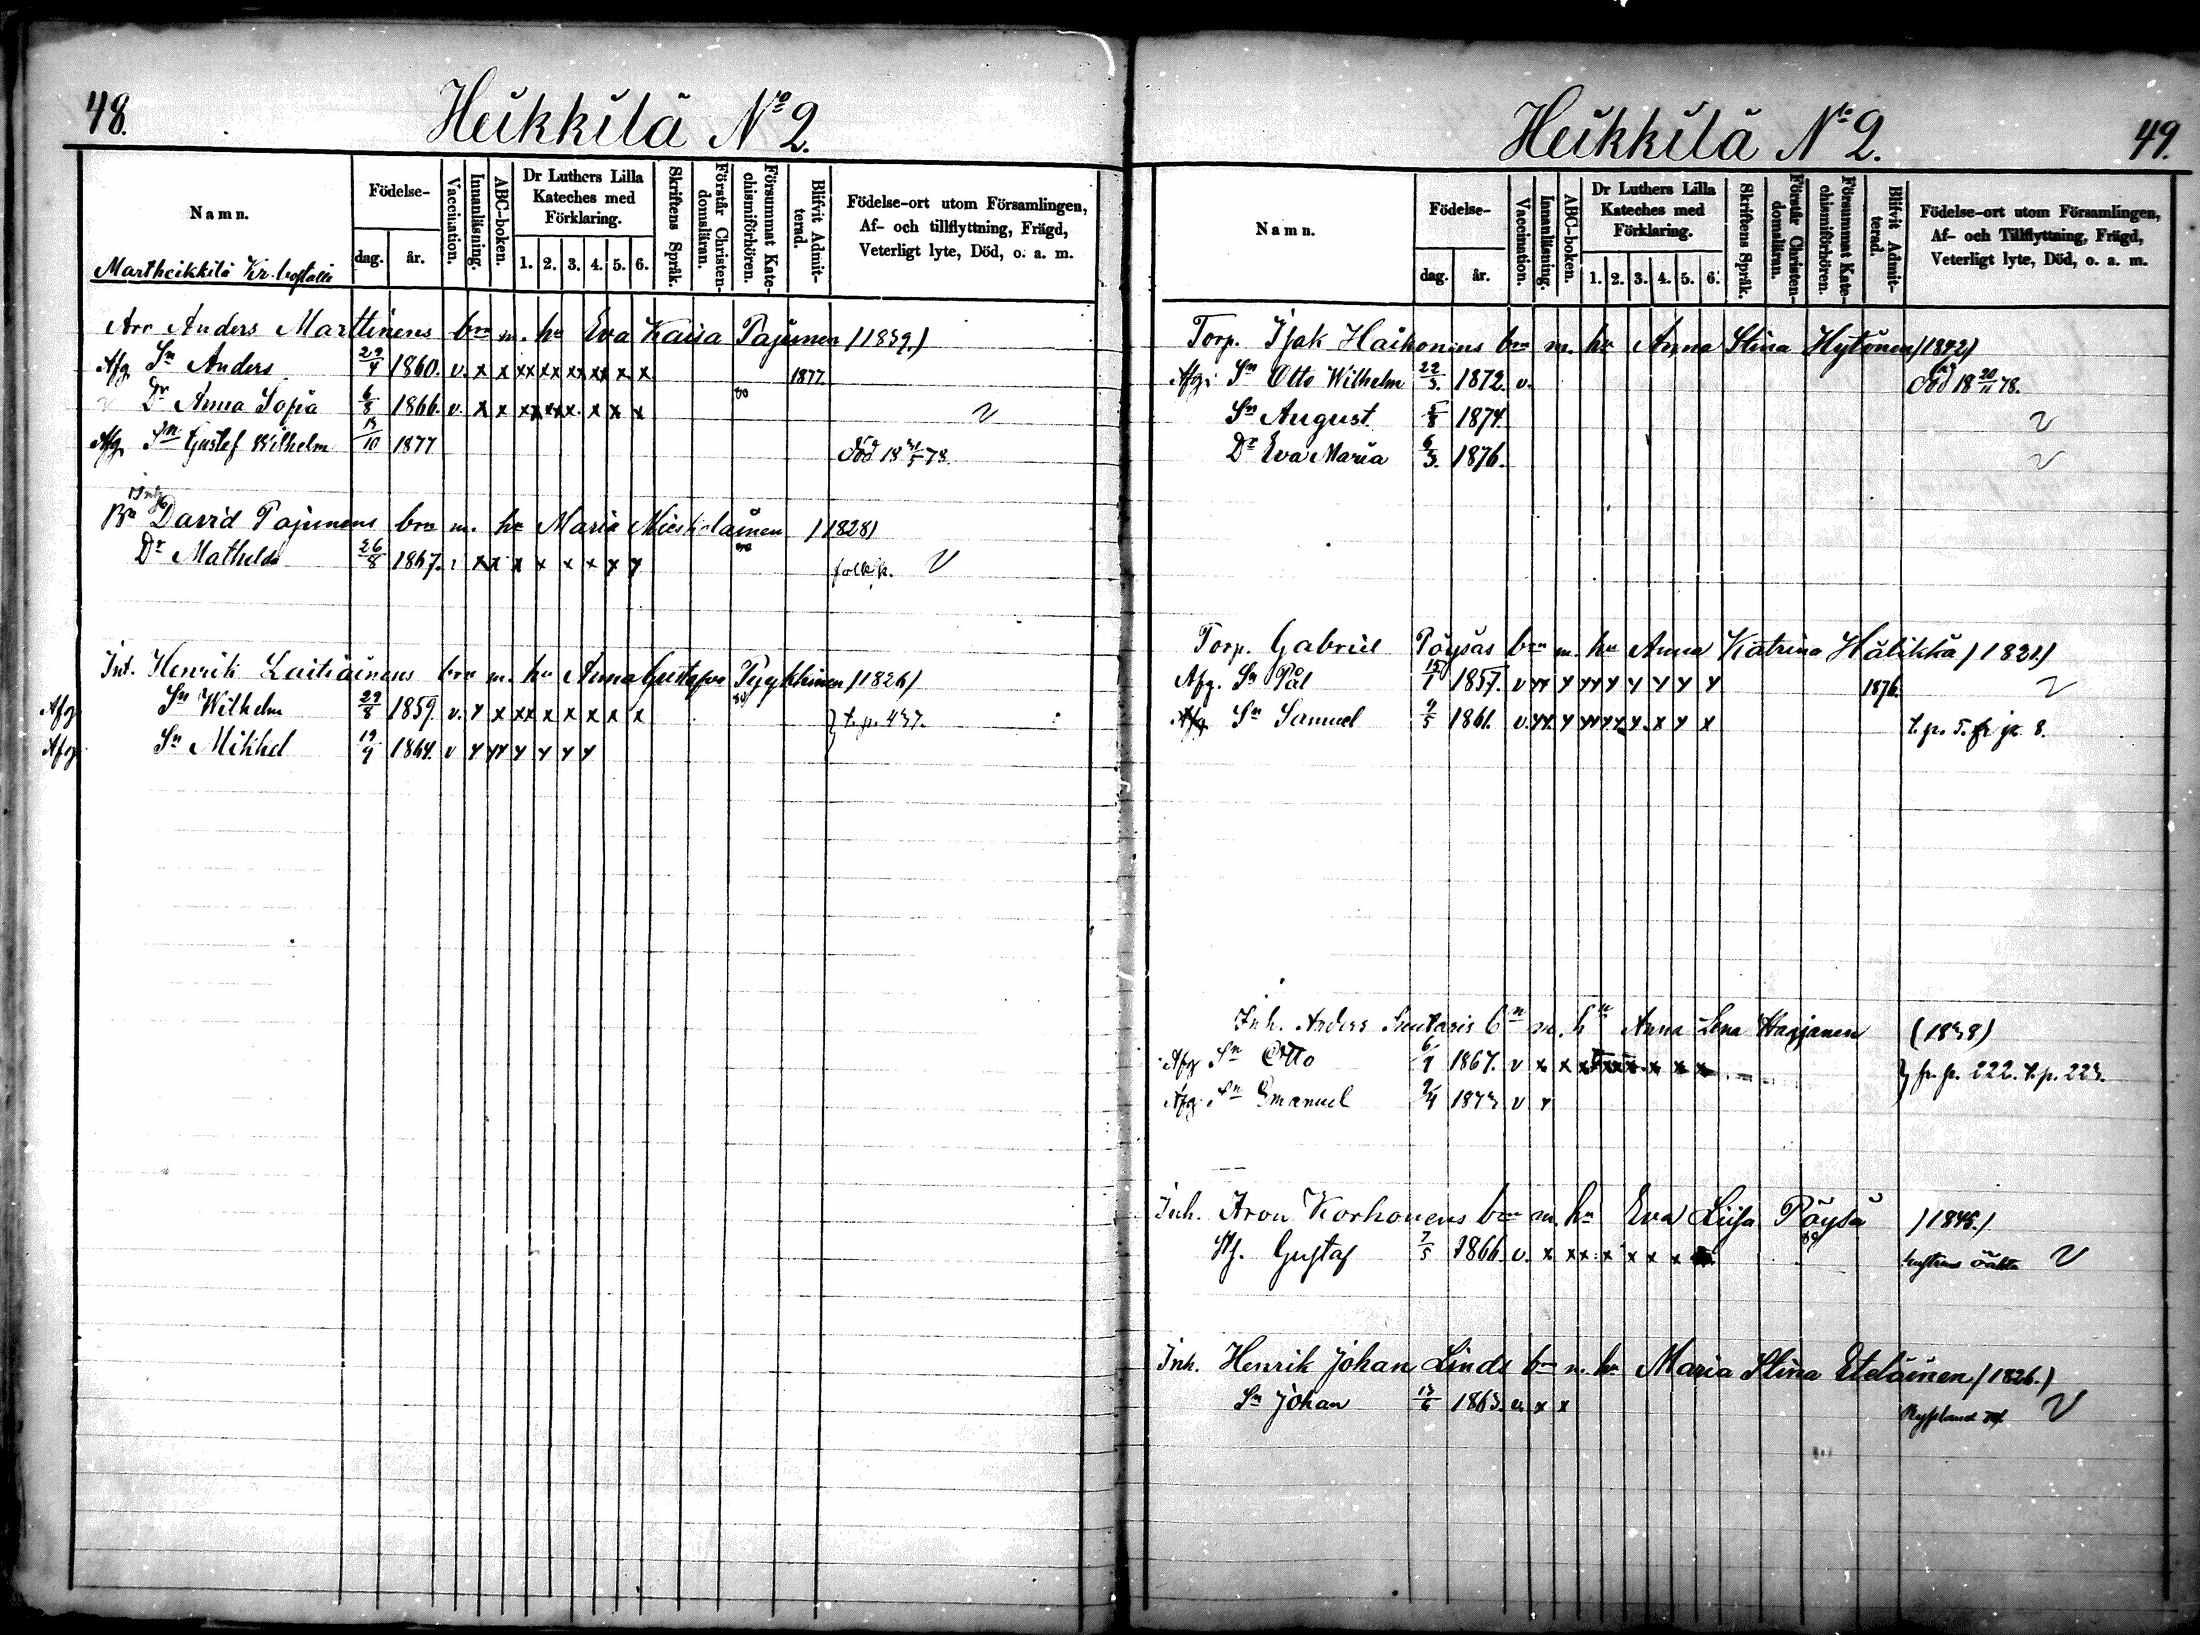 48.
Heikkilä No 2.
Namn.
Födelse-
dag.
år.
Vaccination.
Innanläsning.
ABC-boken.
Dr Luthers Lilla Kateches med Förklaring.
1. 2. 3. 4. 5. 6.
Skriftens Språk.
Förstår Christendomsläran.
Försummat Katechismiförhören.
Blifvit Admitterad.
Födelse-ort utom Församlingen, Af- och tillflyttning, Frägd, Veterligt lyte, Död, o. a. m.
Martheikkilä Kr.
Arr Anders Marttinens brn m. hu Eva Kaisa Pajunen (1839.)
Afg. Sn Anders 29/4 1860. v. x x xx xx xx xx x x 1877
Dr Anna Sofia 6/8 1866. v. x x xx xx x x x x
Afg. Sn Gustef Wilhelm /10 1877 död 18 78.
David Pajunens brn m. hu Maria Mieskolainen (1828)
Dr Mathilda 26/8 1867. xx x x x x x x folk k. V
Int. Henrik Laitiainens brn m. hu Anna Gustafva Pyykkinen (1826)
Afg. Sn Wilhelm 29/8 1859. v. x x xx x x x x x } t. p. 437.
Afg. Sn Mikkel 19/9 1864. v x xx x x x x
Heikkilä No 2.
49.
Namn.
Födelse-
dag.
år.
Vaccination.
Innanläsning.
ABC-boken.
Dr Luthers Lilla Kateches med Förklaring.
1. 2. 3. 4. 5. 6.
Skriftens Språk.
Förstår Christendomsläran.
Försummat Katechismiförhören.
Blifvit Admitterad.
Födelse-ort utom Församlingen, Af- och Tillflyttning, Frägd, Veterligt lyte, Död, o. a. m.
Torp. Isak Haikonens brn m. hu Anna Stina Hytönen (1842)
Afg. Sn Otto Wilhelm 22/3. 1872. v. död 18 20/11 78.
Sn August 5/8 1874.
Dr Eva Maria 6/3. 1876.
Torp. Gabriel Pöysäs brn m. hu Anna Katrina Hälikkä (1821)
Afg. Sn Pål 15/1 1857. v xx x xx x x x x x 1876.
Afg. Sn Samuel 9/5 1861. v. xx x xx x x x x x t. p. 5.
Inh. Anders bn m. hu Anna Lena (1838)
Afg Sn Otto 6/9 1867. v x x x x x x x } fr. p. 222. t. p. 223.
Afg. Sn Emanuel 9/4 1873 v x
Inh. Aron Korhonens brn m. hu Eva Liisa Pöysä (1845.)
Gustaf 7/5 1866. v. x xx x x x x hustruns oäkta V
Inh. Henrik Johan Linds brn m. hu Maria Stina Eteläinen (1826.)
Sn Johan 13/6 1863. v. x x Ryssland V